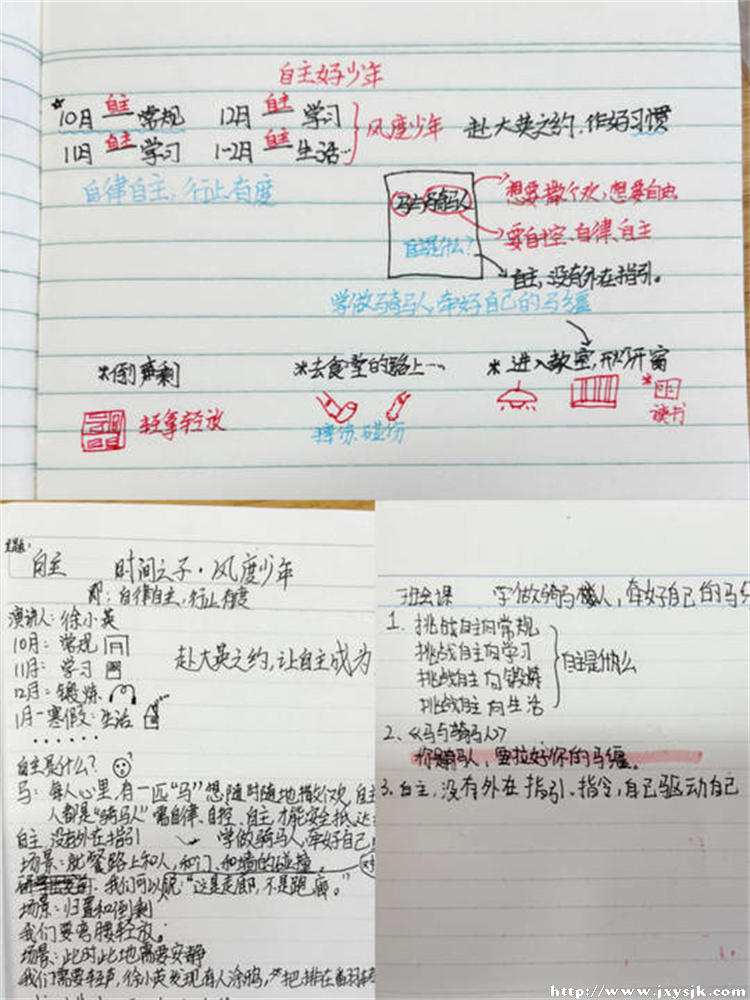 自主好少年
*10月 自主 常规 12月 自主 学习
11月 自主 学习 1-2月 自主 生活…
风度少年 赴大英之约,作好习惯
自律自主,行止有度
马与骑马人 想要撒个欢,想要自由
要自控、自律、自主
自主是什么?
自主,没有外在指引。
学做骑马人,牵好自己的马缰
*倒 剩 *去食堂的路上… *进入教室,开灯开窗
轻拿轻放
撞伤、碰伤
*读书
主题:
自主 时间之子·风度少年
即:自律自主,行止有度
演讲人:徐小英
10月:常规
11月:学习
赴大英之约,让自主成为
12月:锻炼
1月-寒假:生活
……
自主是什么?
马:每人心里,有一匹“马”想随时随地撒个欢,自主
人都是“骑马人”需自律、自控、自主,才能安全抵达
自主,没有外在指引 学做骑马人,牵好自己
场景:就餐路上和人,和门、和墙的碰撞。
我们可以说:“这是走廊,不是跑廊。”
场景:归置和倒剩
我们要弯腰轻放。
场景:此时此地需要安静
我们需要轻声,徐小英发现有人涂鸦,
班会课 学做骑马人,牵好自己的马
1、挑战自主向常规
挑战自主向学习
挑战自主向锻炼
挑战自主向生活
自主是什么
2、《马与骑马人》
你是骑马人,要拉好你的马缰。
3、自主,没有外在指引、指令,自己驱动自己
http://www.jxysjk.com